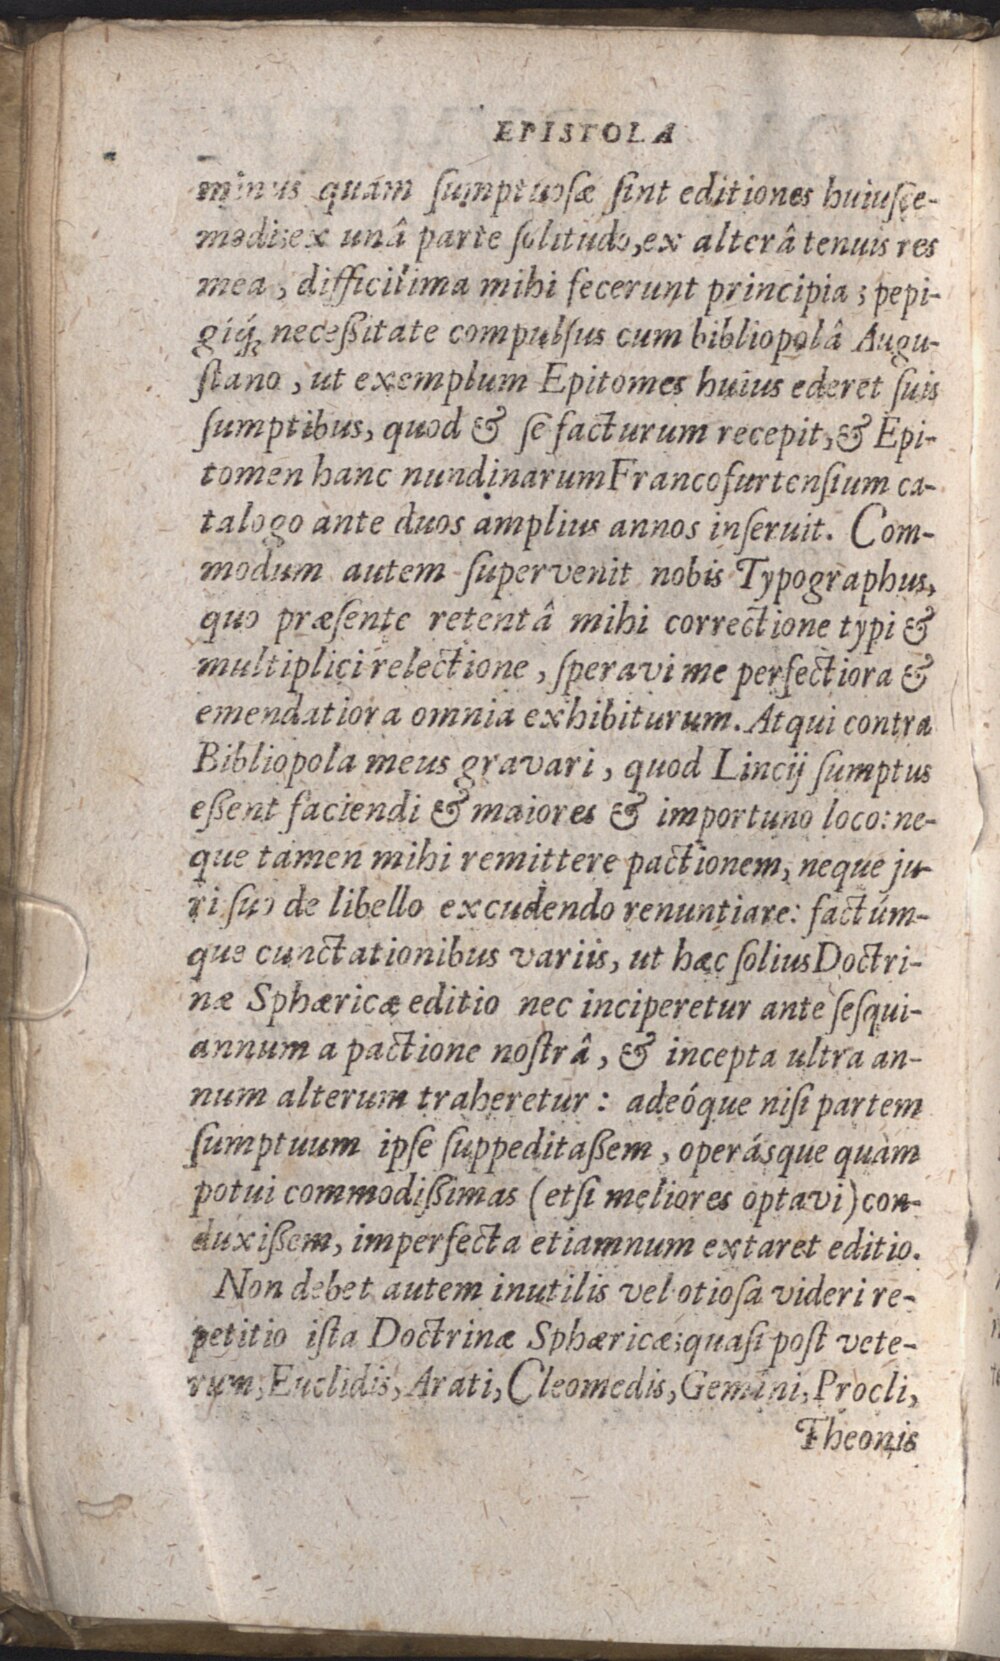 EPISTOLA
minus quàm ſumptuoſæ ſint editiones huiuſce-
modi:ex unâ parte ſolitudo,ex alterâ tenuis res
mea, difficillima mihi fecerunt principia; pepi-
gíq́; neceßitate compulſus cum bibliopolâ Augu-
ſtano, ut exemplum Epitomes huius ederet ſuis
ſumptibus, quod & ſe facturum recepit,& Epi-
tomen hanc nundinarum Francofurtenſium ca-
talogo ante duos amplius annos inſeruit. Com-
modum autem ſupervenit nobis Typographus,
quo præſente retentâ mihi correctione typi &
multiplici relectione, ſperavi me perfectiora &
emendatiora omnia exhibiturum. Atqui contra
Bibliopola meus gravari, quod Lincij ſumptus
eßent faciendi & maiores & importuno loco: ne-
que tamen mihi remittere pactionem, neque ju-
ri ſuo de libello excudendo renuntiare: factúm-
que cunctationibus variis, ut hæc ſolius Doctri-
næ Sphæricæ editio nec inciperetur ante ſeſqui-
annum a pactione noſtrâ, & incepta ultra an-
num alterum traheretur: adeóque niſi partem
ſumptuum ipſe ſuppeditaßem, operásque quàm
potui commodißimas (etſi meliores optavi) con-
duxißem, imperfecta etiamnum extaret editio.
Non debet autem inutilis vel otioſa videri re-
petitio iſta Doctrinæ Sphæricæ;quaſi poſt vete-
rum, Euclidis, Arati, Cleomedis, Gemini, Procli,
Theonis